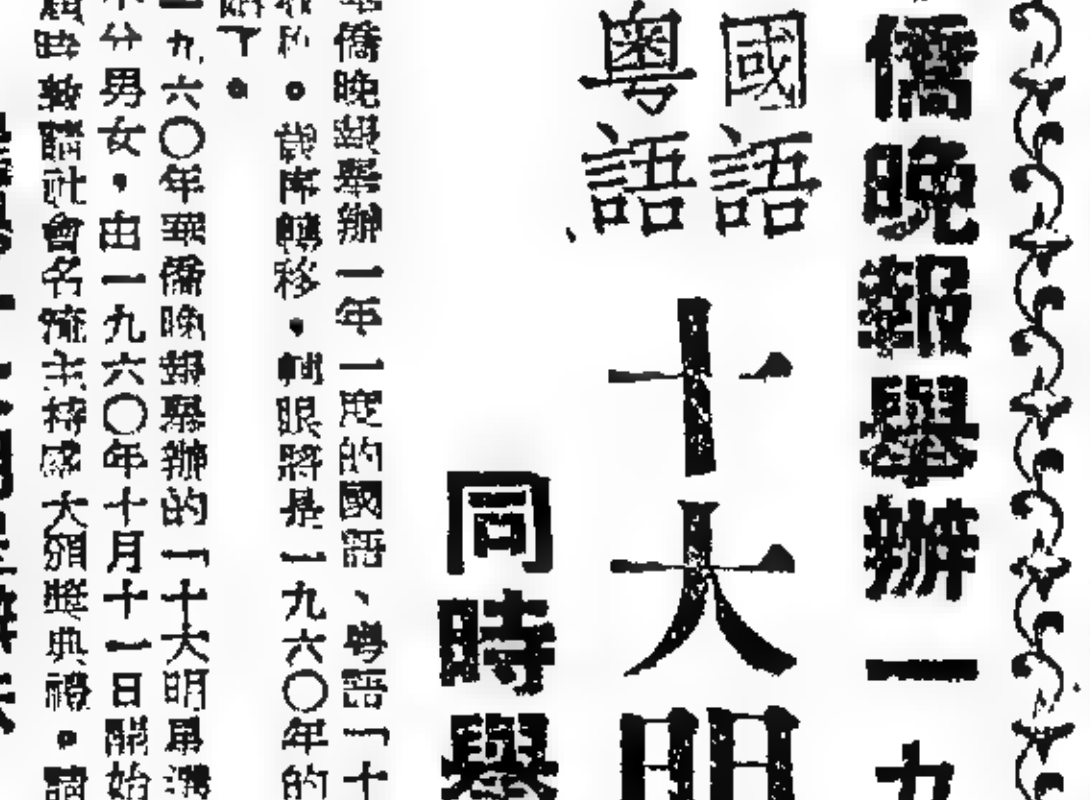 僑晚報舉辦一九
國語
粵語
十大明
同時舉
僑晚報舉辦一年一度的國語、粵語「十
。歲序轉移,轉眼將是一九六〇年的
了。
一九六〇年華僑晚報舉辦的「十大明星選
不分男女,由一九六〇年十月十一日開始
時敦請社會名流主持盛大頒獎典禮。請